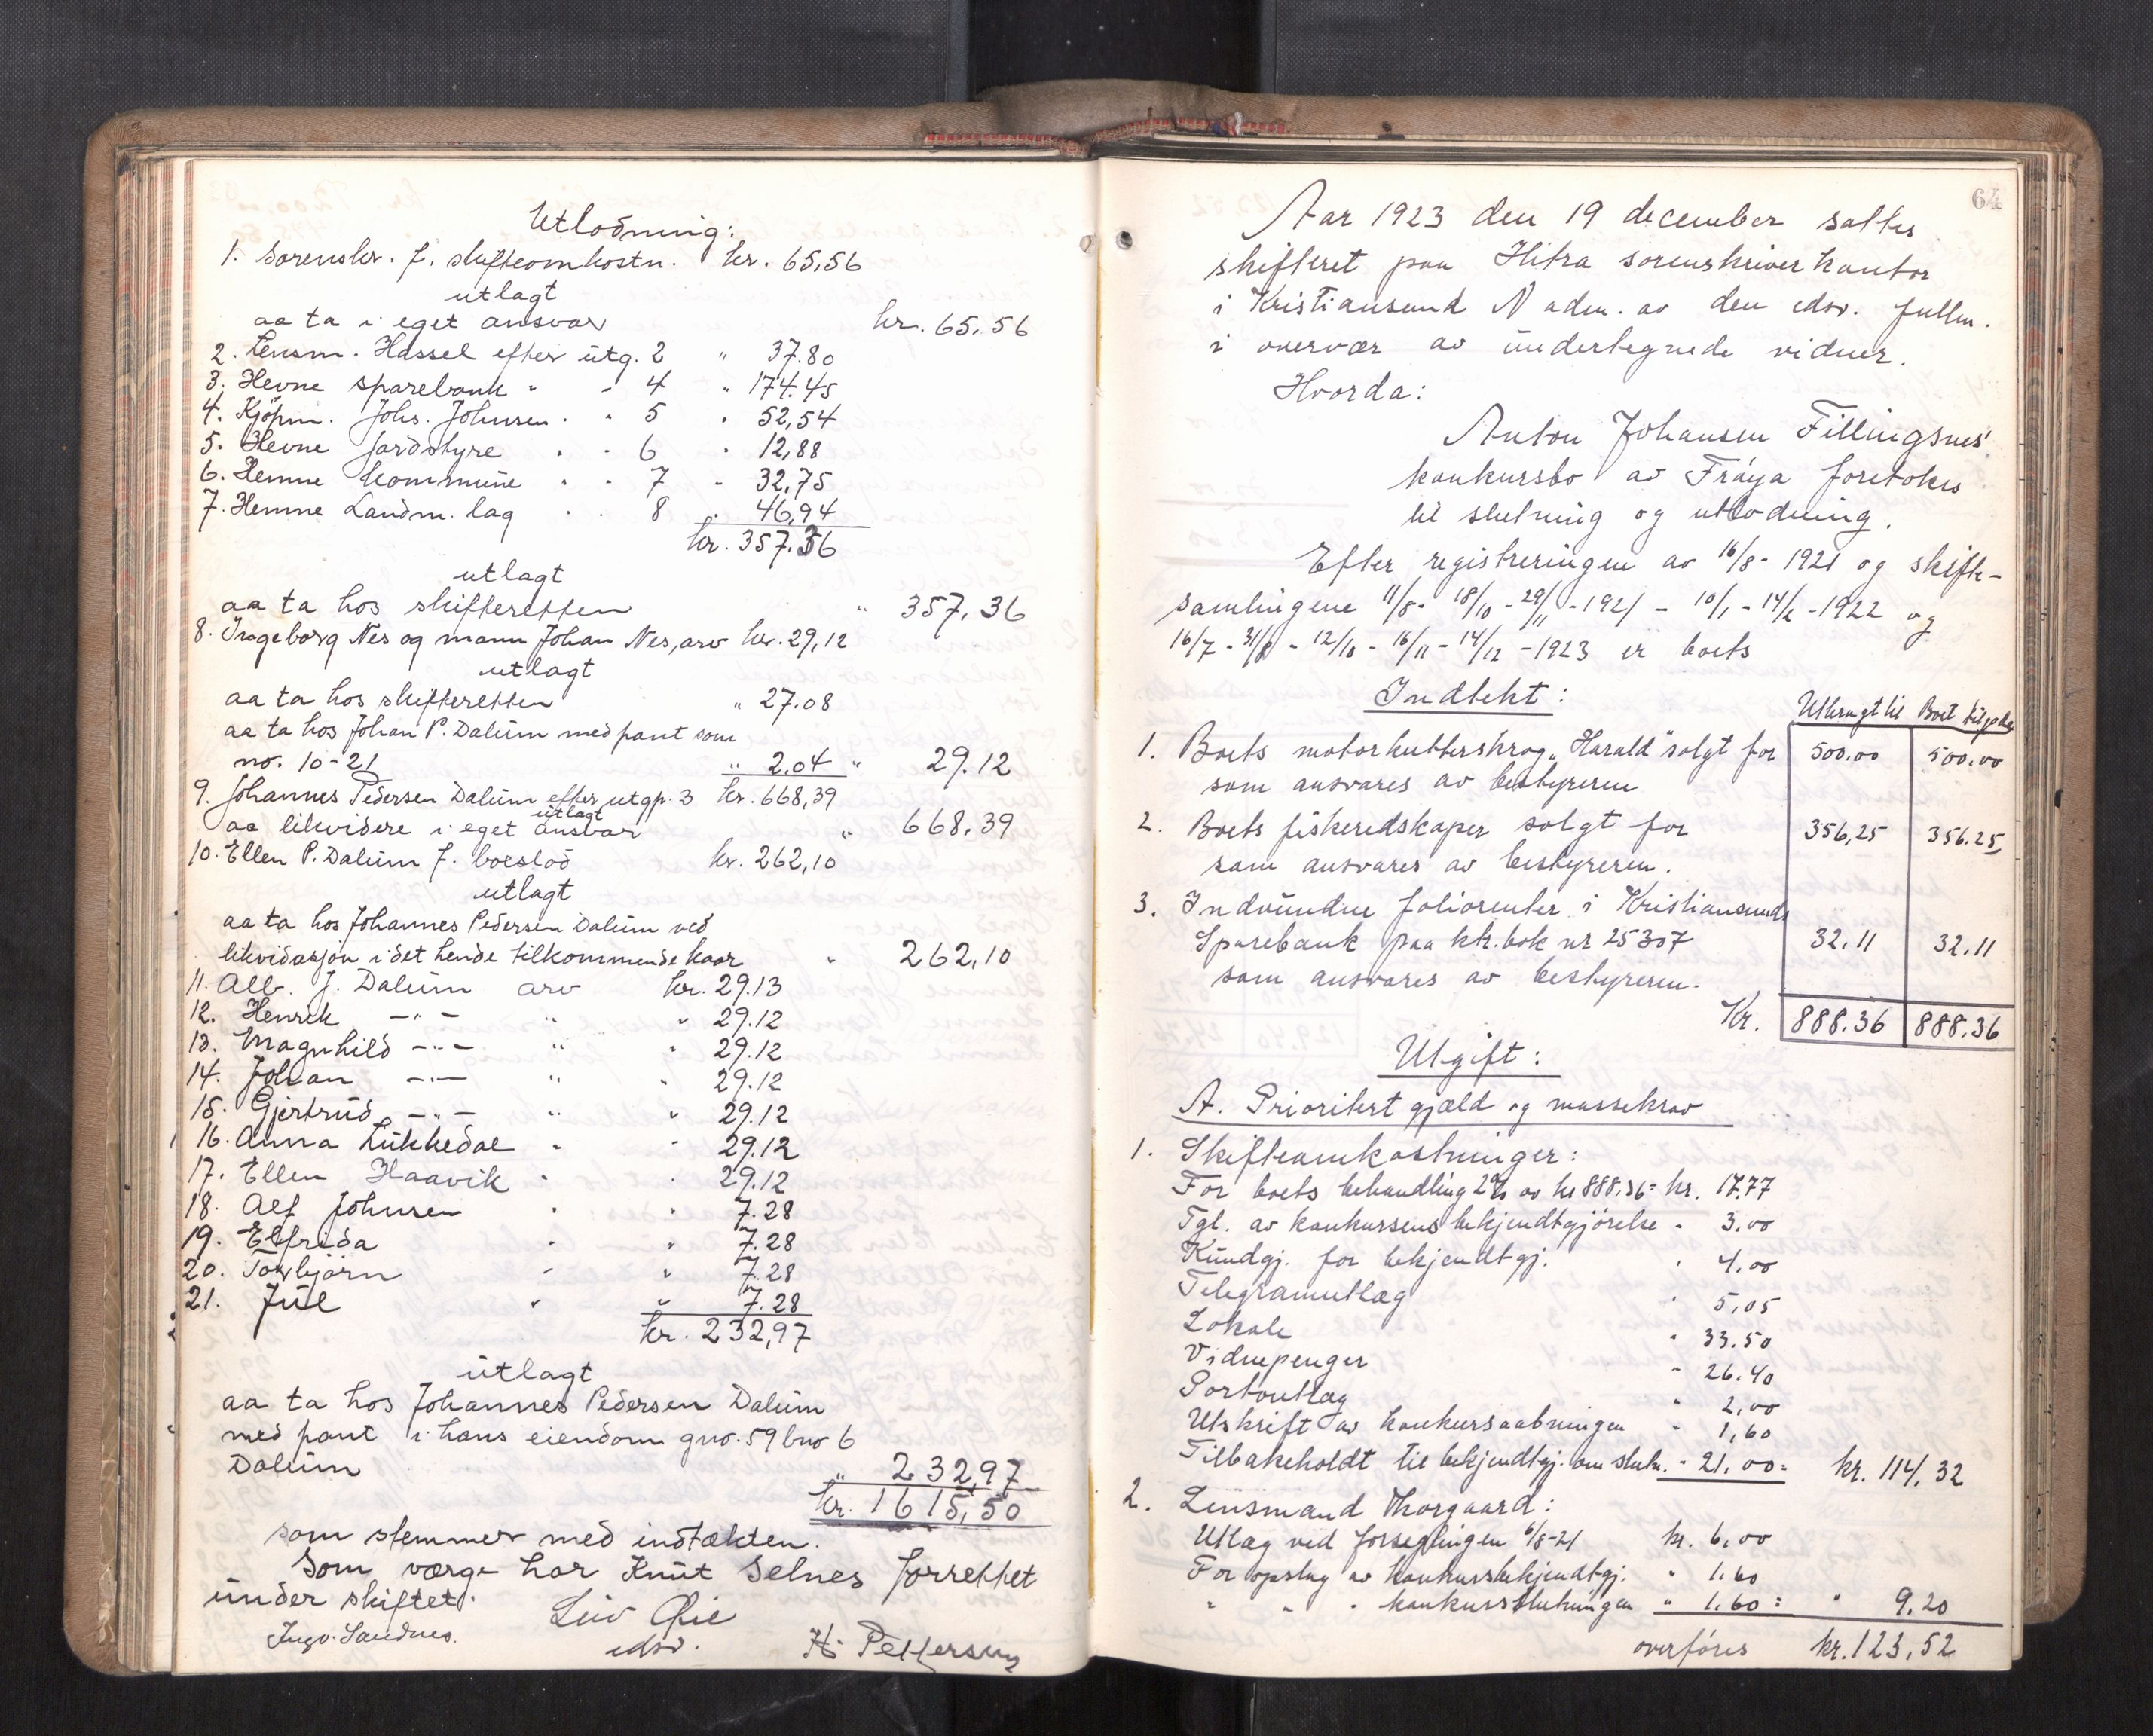 Utlodning:
1. Sorenskr. f. skifteomkostn. kr. 65,56
utlagt
aa ta i eget ansvar kr. 65,56
2. Lensm. Hassel efter utg. 2 " 37.80
3. Hevne sparebank " " 4 " 174.45
4. Kjöpm. Johs. Johnsen " " 5 " 52,54
5. Hevne jordstyre " " 6 " 12,88
6. Hemne kommune " " 7 " 32,75
7. Hemne Landm. lag " " 8 " 46,94
kr. 357.36
utlagt
aa ta hos skifteretten " 357,36
8. Ingeborg Nes og mann Johan Nes, arv kr. 29,12
utlagt
aa ta hos skifteretten " 27.08
aa ta hos Johan P. Dalum med pant som
no. 10-21 " 2.04 " 29.12
9. Johannes Pedersen Dalum efter utgp. 3 kr. 668,39
utlagt
aa likvidere i eget ansvar " 668,39
10. Ellen P. Dalum f. boeslod kr. 262,10
utlagt
aa ta hos Johannes Pedersen Dalum ved
likvidasjon i det hende tilkommende kaar " 262,10
11. Alb. J. Dalum arv kr. 29.13
12. Henrik -"- " " 29.12
13. Magnhild -"- " " 29.12
14. Johan -"- " " 29.12
15. Gjertrud -"- " " 29.12
16. Anna Lukkedal " " 29.12
17. Ellen Haavik " " 29.12
18. Alf Johnsen " " 7.28
19. Elfrida " " 7.28
20. Torbjörn " " 7.28
21. Jul " " 7.28
kr. 232,97
utlagt
aa ta hos Johannes Pedersen Dalum
med pant i hans eiendom gno. 59 bno 6
Dalum " 232,97
kr. 1615,50
som stemmer med indtækten.
Som værge har Knut Selnes forrettet
under skiftet.
Ingv. Sandnes. Leiv Öie H. Pettersen
edsv.
64
Aar 1923 den 19 december sattes
skifteret paa Hitra sorenskriverkontor
i Kristiansund N adm. av den edsv. fullm.
i overvær av undertegnede vidner.
Hvorda:
Anton Johansen Fillingsnes'
konkursbo av Fröya foretokes
til slutning og utlodning.
Efter registreringen av 16/8 - 1921 og skifte-
samlingene 11/8 - 18/10 - 29/11 - 1921 - 10/1 - 14/2 - 1922 og
16/7 - 31/8 - 12/10 - 16/11 - 14/12 - 1923 er boets
Indtekt: Utbragt til Boet tilgode
1. Boets motorkutterskrog "Harald" solgt for 500.00 500.00
som ansvares av bestyreren
2. Boets fiskeredskaper solgt for 356,25 356.25
som ansvares av bestyreren.
3. Indvundne foliorenter i Kristiansunds
Sparebank paa ktr. bok nr 25307 32.11 32.11
som ansvares av bestyreren.
Kr. 888.36 888.36
Utgift:
A. Prioritert gjæld og massekrav
1. Skifteomkostninger:
For boets behandling 2% av kr 888.36 = kr. 17.77
Tgl. av konkursens bekjendtgjörelse " 3.00
Kundgj. for bekjendtgj. " 4.00
Telegramutlæg " 5,05
Lokale " 33.50
Vidnepenger " 26.40
Portoutlæg " 2,00
Utskrift av konkursaabningen " 1,60
Tilbakeholdt til bekjendtgj. om slutn. " 21,00 = kr. 114,32
2. Lensmand Thorgaard:
Utlæg ved forseglingen 6/8-21 kr. 6,00
For opslag av konkursbekjendtgj. " 1.60
" " " konkursslutningen " 1.60 = " 9.20
overföres kr. 123,52